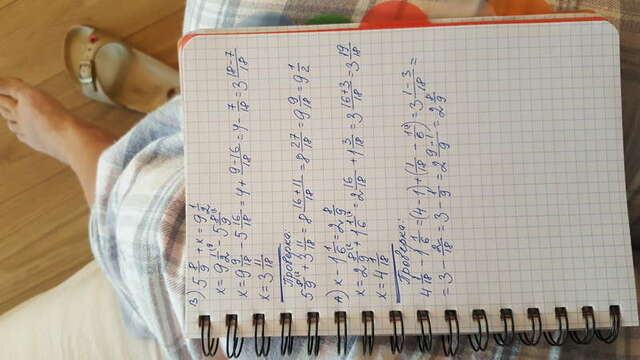 В) 5 8/9 + x = 9 1/2
x = 9 1/2 - 5 8/9
x = 9 9/18 - 5 16/18 = 4 + 9-16/18 = 4 - 7/18 = 3 18-7/18
x = 3 11/18
Проверка:
5 8/9 + 3 11/18 = 8 16+11/18 = 8 27/18 = 9 9/18 = 9 1/2
А) x - 1 1/6 = 2 8/9
x = 2 8/9 + 1 1/6 = 2 16/18 + 1 3/18 = 3 16+3/18 = 3 19/18
x = 4 1/18
Проверка:
4 1/18 - 1 1/6 = (4-1) + (1/18 - 1/6) = 3 1-3/18 =
= 3 - 2/18 = 3 - 1/9 = 2 9-1/9 = 2 8/9